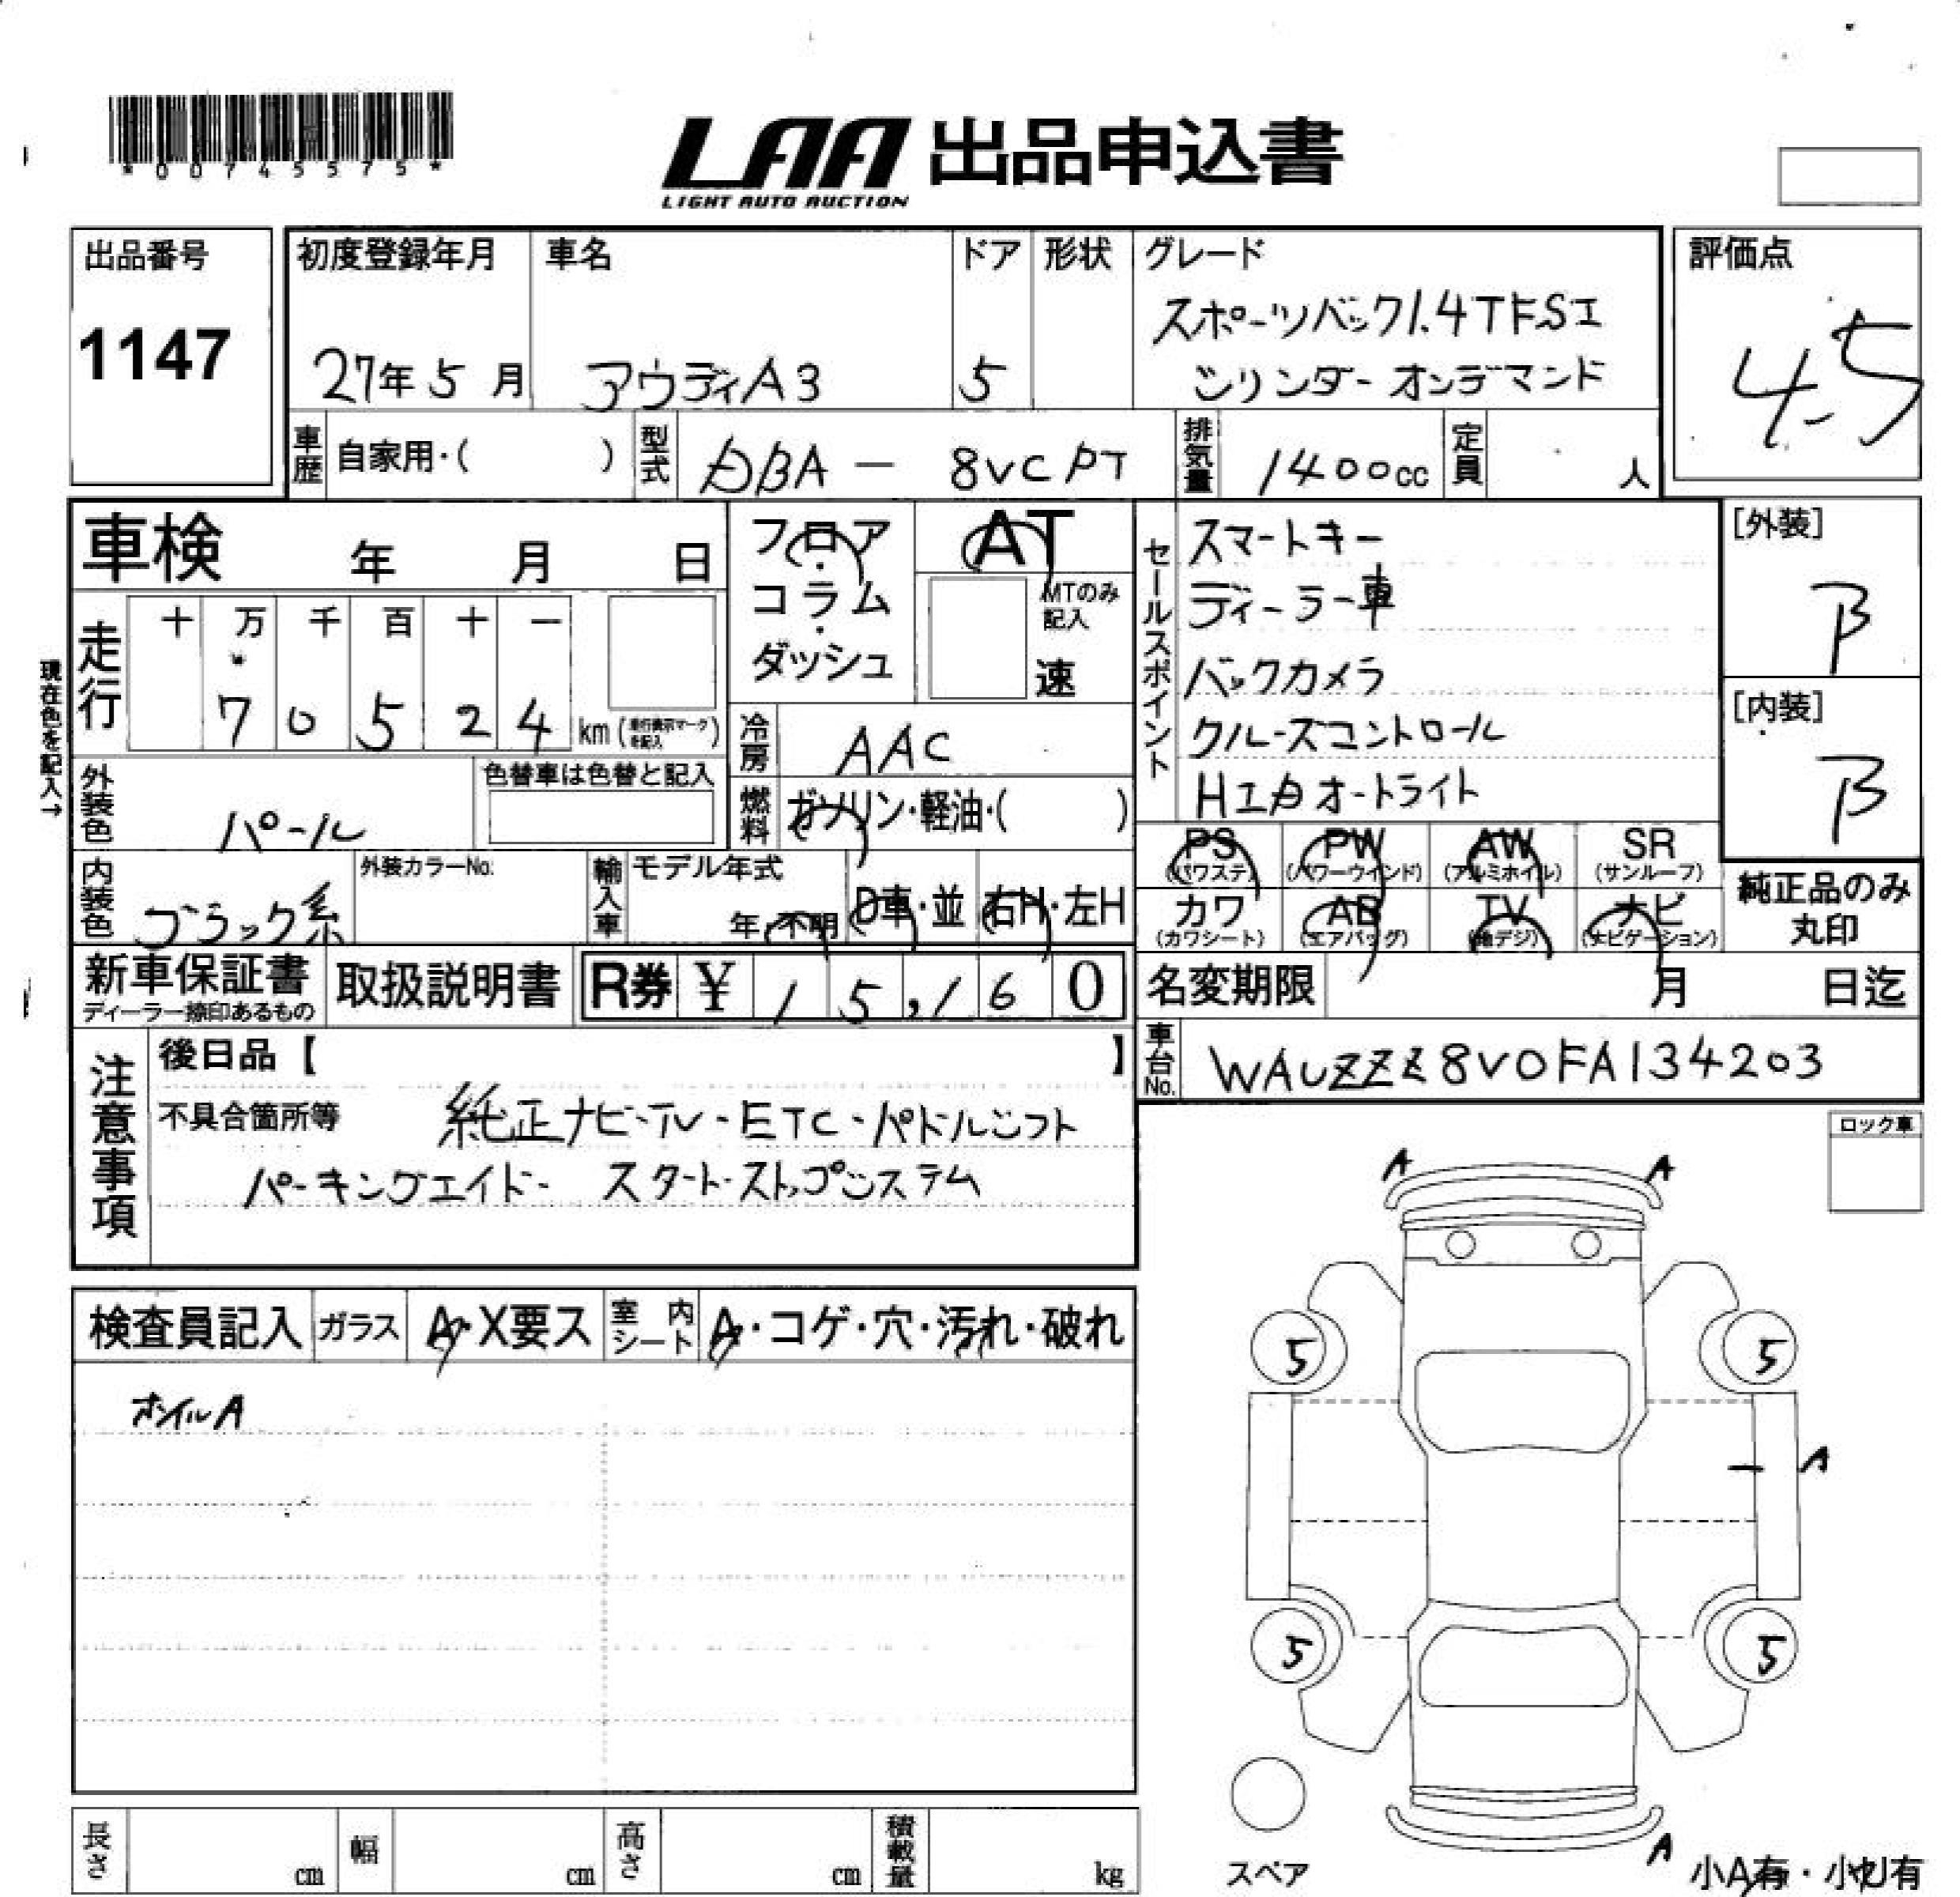 *00745575*
LAA 出品申込書
LIGHT AUTO AUCTION
出品番号
1147
初度登録年月
27年 5 月
車名
アウディA3
ドア
5
形状
グレード
スポーツバック1.4TFSI
シリンダーオンデマンド
評価点
4.5
車歴
自家用・( )
型式
DBA - 8VCPT
排気量
1400cc
定員
人
車検 年 月 日
走行
十 万 千 百 十 一
7 0 5 2 4 km (走行表示マークを記入)
現在色を記入→
フロア・コラム・ダッシュ
AT
MTのみ記入
速
冷房
AAC
燃料
ガソリン・軽油・( )
外装色
パール
色替車は色替と記入
内装色
ブラック系
外装カラーNo.
輸入車
モデル年式
年・不明
D車・並
右H・左H
セールスポイント
スマートキー
ディーラー車
バックカメラ
クルーズコントロール
HIDオートライト
[外装]
B
[内装]
B
PS (パワステ)
PW (パワーウインド)
AW (アルミホイル)
SR (サンルーフ)
カワ (カワシート)
AB (エアバッグ)
TV (地デジ)
ナビ (ナビゲーション)
純正品のみ丸印
新車保証書
ディーラー捺印あるもの
取扱説明書
R券 ¥ 15,160
名変期限 月 日迄
車台No.
WAUZZZ8V0FA134203
注意事項
後日品【 】
不具合箇所等 純正ナビ・TV・ETC・パドルシフト
パーキングエイド・スタートストップシステム
ロック車
A A
検査員記入
ガラス
A・X要ス
室内シート
A・コゲ・穴・汚れ・破れ
ホイルA
5 5
A
5 5
A
スペア
小A有・小U有
長さ cm
幅 cm
高さ cm
積載量 kg